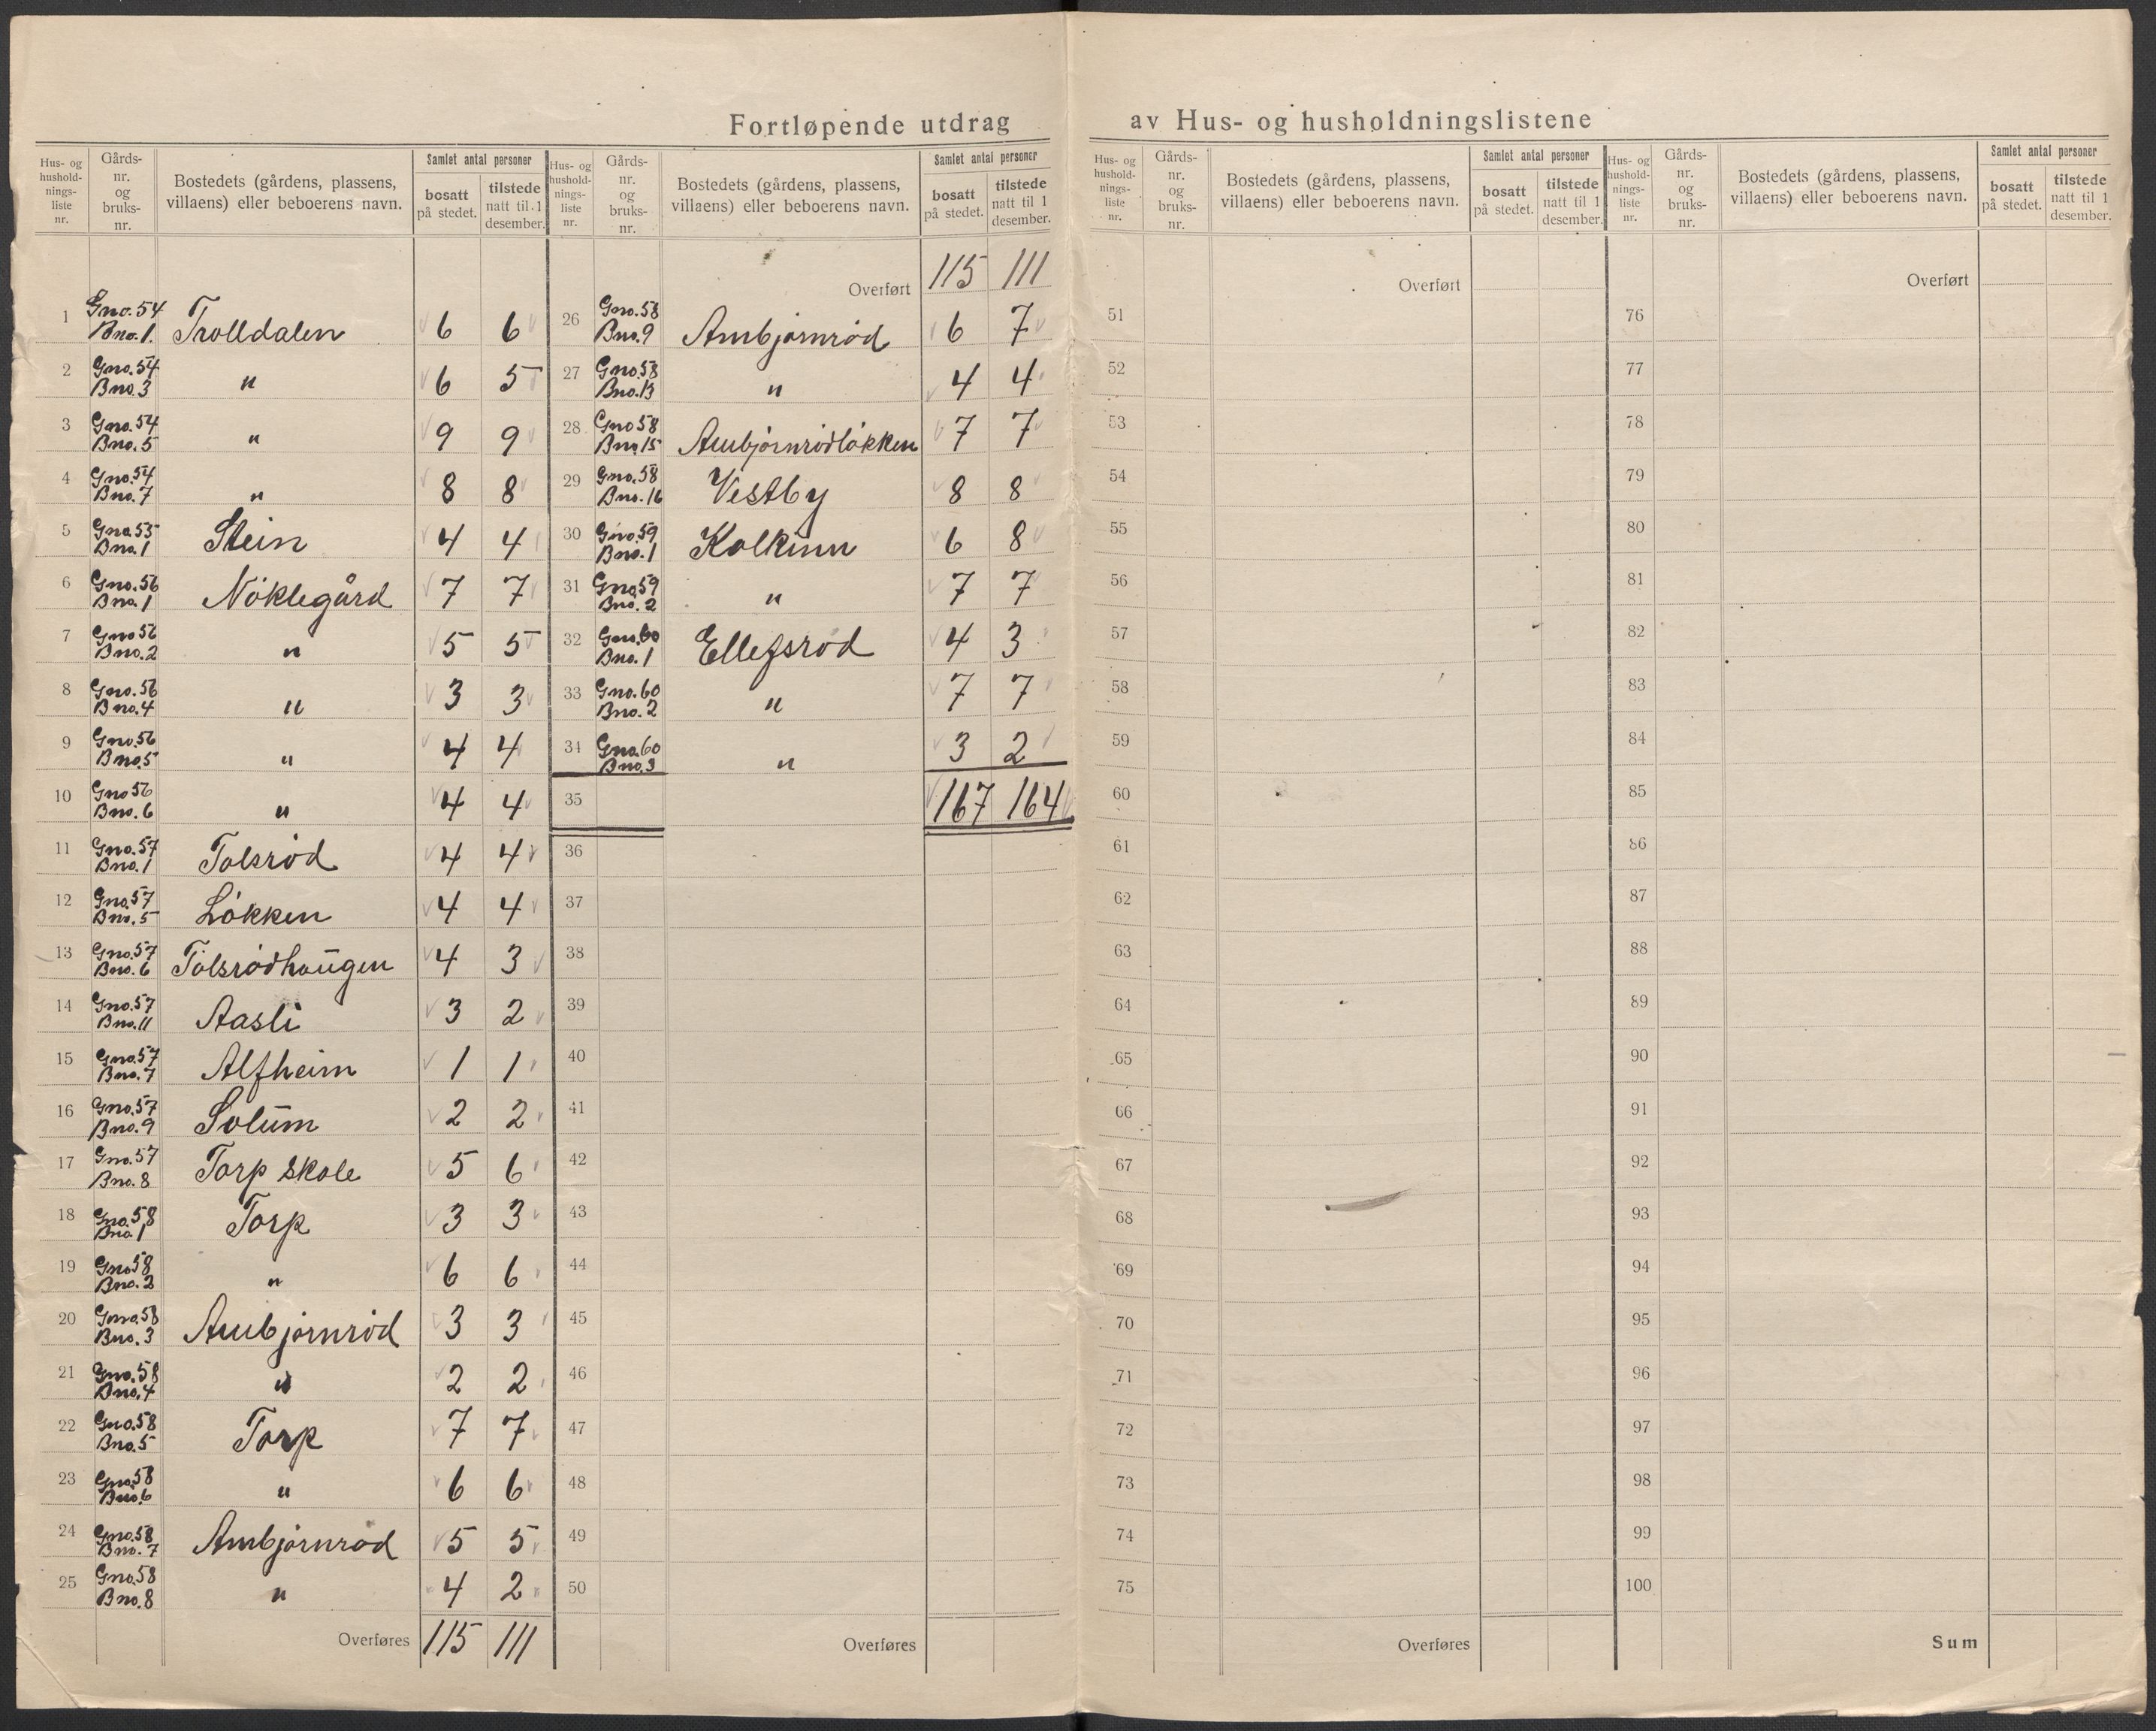 Fortløpende utdrag av Hus- og husholdningslistene
Hus- og hushold-nings-liste nr. | Gårds-nr. og bruks-nr. | Bostedets (gårdens, plassens, villaens) eller beboerens navn. | Samlet antal personer | bosatt på stedet. | tilstede natt til 1 desember.
1 Gno. 54 Bno. 1. Trolldalen 6 6
2 Gno. 54 Bno. 3 " 6 5
3 Gno. 54 Bno. 5 " 9 9
4 Gno. 54 Bno. 7 " 8 8
5 Gno. 55 Bno. 1 Stein 4 4
6 Gno. 56 Bno. 1 Nöklegård 7 7
7 Gno 56 Bno. 2 " 5 5
8 Gno. 56 Bno. 4 " 3 3
9 Gno. 56 Bno. 5 " 4 4
10 Gno 56 Bno. 6 " 4 4
11 Gno. 57 Bno. 1 Tolsröd 4 4
12 Gno. 57 Bno. 5 Lökken 4 4
13 Gno. 57 Bno. 6 Tolsrödhaugen 4 3
14 Gno. 57 Bno. 11 Aasli 3 2
15 Gno. 57 Bno. 7 Alfheim 1 1
16 Gno. 57 Bno. 9 Solum 2 2
17 Gno. 57 Bno. 8 Torp skole 5 6
18 Gno. 58 Bno. 1 Torp 3 3
19 Gno 58 Bno. 2 " 6 6
20 Gno. 58 Bno. 3 Ambjörnröd 3 3
21 Gno. 58 Bno. 4 " 2 2
22 Gno. 58 Bno. 5 Torp 7 7
23 Gno. 58 Bno. 6 " 6 6
24 Gno. 58 Bno. 7 Ambjörnröd 5 5
25 Gno. 58 Bno. 8 " 4 2
Overføres 115 111
Hus- og hushold-nings-liste nr. | Gårds-nr. og bruks-nr. | Bostedets (gårdens, plassens, villaens) eller beboerens navn. | Samlet antal personer | bosatt på stedet. | tilstede natt til 1 desember.
Overført 115 111
26 Gno. 58 Bno. 9 Ambjörnröd 6 7
27 Gno. 58 Bno. 13 " 4 4
28 Gno 58 Bno. 15 Ambjörnrödlökken 7 7
29 Gno. 58 Bno. 16 Vestby 8 8
30 Gno. 59 Bno. 1 Kolkinn 6 8
31 Gno. 59 Bno. 2 " 7 7
32 Gno. 60 Bno. 1 Ellefsröd 4 3
33 Gno. 60 Bno. 2 " 7 7
34 Gno. 60 Bno. 3 " 3 2
35 167 164
36
37
38
39
40
41
42
43
44
45
46
47
48
49
50
Overføres
Hus- og hushold-nings-liste nr. | Gårds-nr. og bruks-nr. | Bostedets (gårdens, plassens, villaens) eller beboerens navn. | Samlet antal personer | bosatt på stedet. | tilstede natt til 1 desember.
Overført
51
52
53
54
55
56
57
58
59
60
61
62
63
64
65
66
67
68
69
70
71
72
73
74
75
Overføres
Hus- og hushold-nings-liste nr. | Gårds-nr. og bruks-nr. | Bostedets (gårdens, plassens, villaens) eller beboerens navn. | Samlet antal personer | bosatt på stedet. | tilstede natt til 1 desember.
Overført
76
77
78
79
80
81
82
83
84
85
86
87
88
89
90
91
92
93
94
95
96
97
98
99
100
Sum